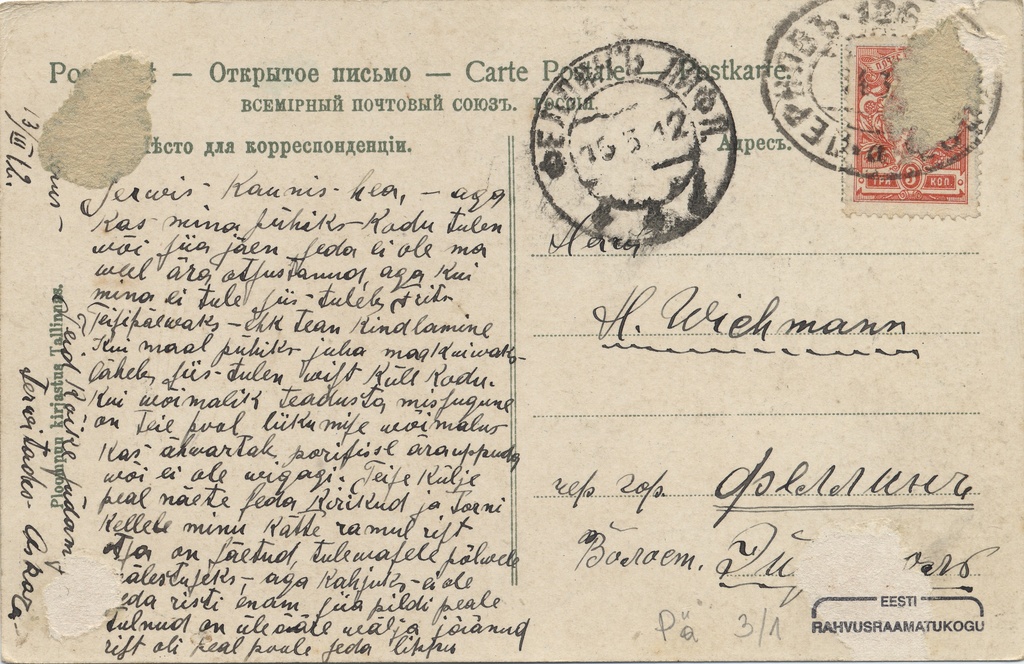 Открытое письмо — Carte Postale Postkarte.
ВСЕМІРНЫЙ ПОЧТОВЫЙ СОЮЗЪ. РОССІЯ.
для корреспонденціи.
Адресъ.
ФЕЛЛИНЪ ЛИФЛ.
15 3 12
ПЕРНОВЪ
ТРИ 3 КОП.
13 III 12.
Terwis- Kaunis- hea, - aga
kas mina pühiks- Kodu tulen
wõi siia jäen seda ei ole ma
weel ära otsustanud, aga kui
mina ei tule siis- tuleb Frits
Teisipäewaks - Ehk tean kindlamine
Kui maal pühiks juba maa kuiwaks-
läheb, siis- tulen wist Küll Kodu.
Kui wõimalik teadusta missugune
on Teie pool liikumise wõimalus
Kas ähwartab porisisse ärauppuda
wõi ei ole wigagi. Teise külje
peal näete seda Kirikud ja Torni
Kellele minu Kätte ramul rist
on saetud, tulewasele põlwele
mälestuseks- aga kahjuks- ei ole
seda risti enam siia pildi peale
tulnud on ülesääre wälja jäänud
rist oli seal poole seda lippu
Teid Kõike südamy
Terwitades- Oskar
Ploompuu kirjastus Tallinnas.
Herrn
H. Wichmann
чер гор. Феллинъ
Волост.
EESTI
RAHVUSRAAMATUKOGU
Pä 3/1